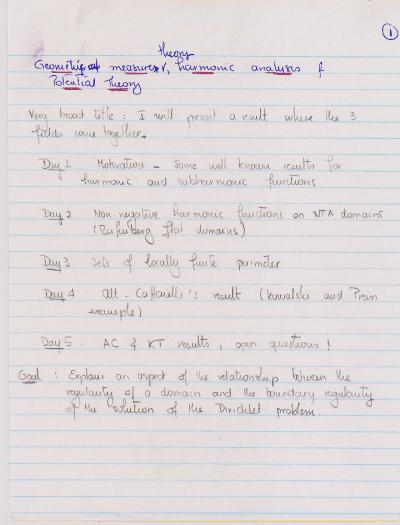 1
Geometric measure theory, harmonic analysis &
Potential Theory
Very broad title : I will present a result where the 3
fields come together.
Day 1 Motivation - Some well known results for
harmonic and subharmonic functions
Day 2 Non negative harmonic functions on NTA domains
(Reifenberg flat domains)
Day 3 Sets of locally finite perimeter
Day 4 Alt-Caffarelli's result (Kowalski and Preiss
example)
Day 5 : AC & KT results, open questions !
Goal : Explain an aspect of the relationship between the
regularity of a domain and the boundary regularity
of the solution of the Dirichlet problem.